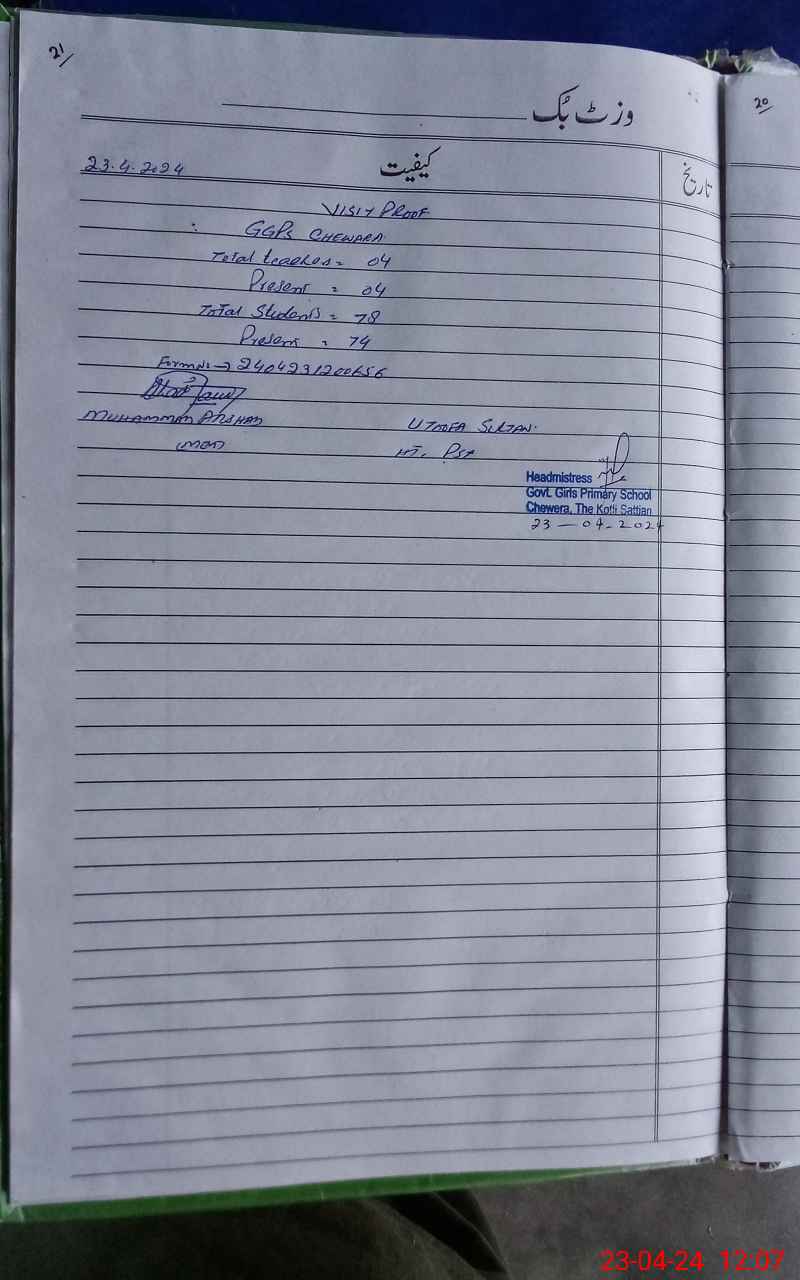 21/
20/
وزٹ بُک
کیفیت
تاریخ
23.4.2024
VISIT PROOF
GGPS CHEWARA
Total teaches = 04
Present = 04
Total Students = 78
Present = 74
MUHAMMAD ARSHAD
SULTAN.
HT. PST
Headmistress
Govt. Girls Primary School
Chewera, The Kotli Sattian
23 — 04 - 2024
23-04-24 12:07